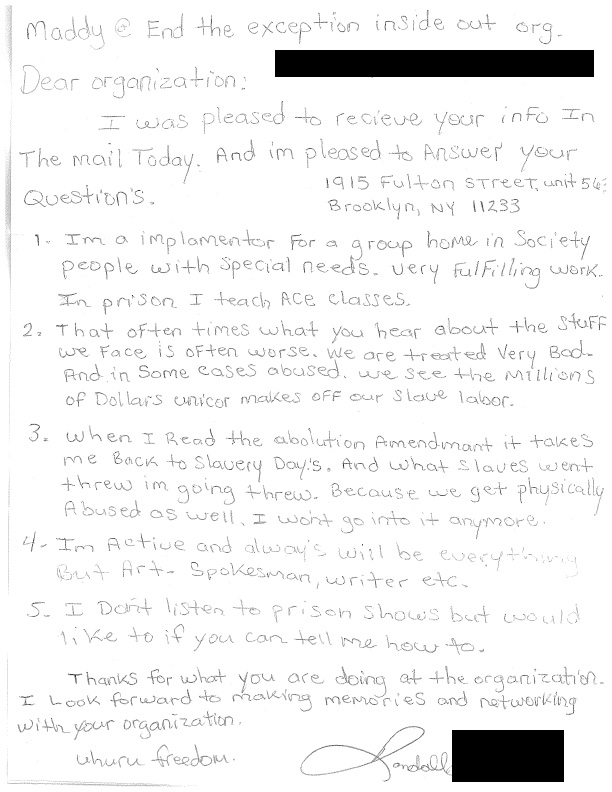 Maddy @ End the exception inside out org.
Dear organization:
I was pleased to recieve your info In
The mail Today. And im pleased to Answer your
Question's.
1915 Fulton Street, unit 563
Brooklyn, NY 11233
1. Im a implamentor For a group home in Society
people with Special needs. very Fulfilling work.
In prison I teach ACE classes.
2. That often times what you hear about the stuff
we Face is often worse. we are treated Very Bad.
And in Some cases abused. we see the Millions
of Dollars unicor makes off our slave labor.
3. when I Read the abolution Amendmant it takes
me Back to Slavery Day's. And what slaves went
threw im going threw. Because we get physically
Abused as well. I won't go into it anymore.
4- Im Active and alway's will be everything
But Art- Spokesman, writer etc.
5. I Don't listen to prison shows but would
like to if you can tell me how to.
Thanks for what you are doing at the organization.
I Look forward to making memories and networking
with your organization.
uhuru freedom.
Randall